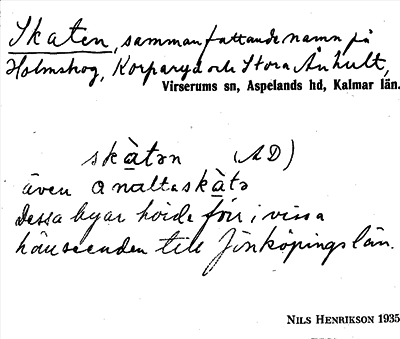 Skaten, sammanfattande namn på
Holmskog, Korparyd och Stora Ånhult,
Virserums sn, Aspelands hd, Kalmar län.
skà̱tən (AD)
även
Dessa byar hörde förr i vissa
hänseenden till Jönköpings län.
NILS HENRIKSON 1935